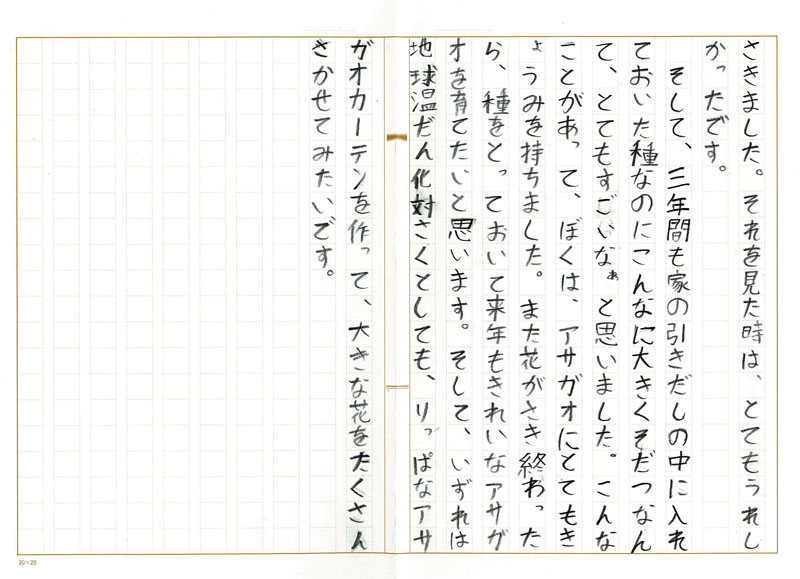 さきました。それを見た時は、とてもうれし
かったです。
そして、三年間も家の引きだしの中に入れ
ておいた種なのにこんなに大きくそだつなん
て、とてもすごいなぁと思いました。こんな
ことがあって、ぼくは、アサガオにとてもき
ょうみを持ちました。また花がさき終わった
ら、種をとっておいて来年もきれいなアサガ
オを育てたいと思います。そして、いずれは
地球温だん化対さくとしても、りっぱなアサ
ガオカーテンを作って、大きな花をたくさん
さかせてみたいです。
20×20